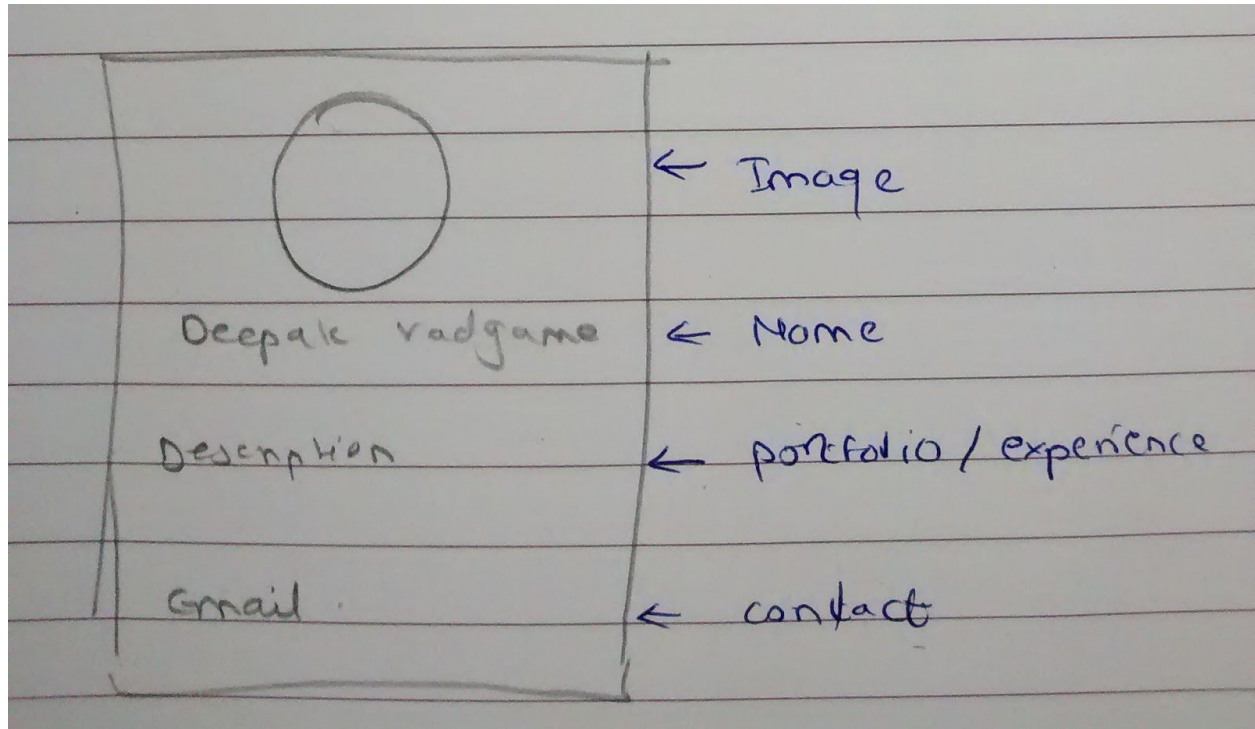 ← Image
Deepak vadgame ← Name
Description ← portfolio / experience
Gmail ← contact